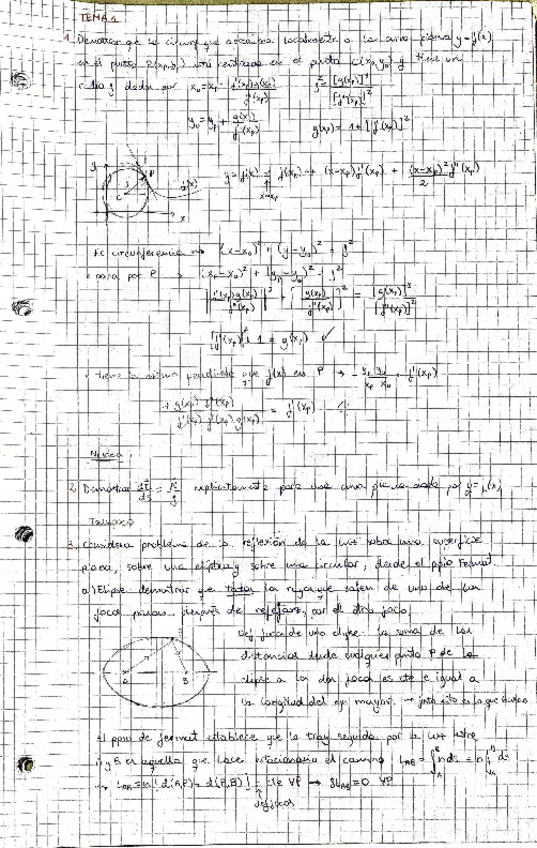 TEMA 1
1. Demostrar que la circunf. que aproxima localmente a la curva plana y = y(x)
en el punto P(xp, yp) está centrada en el punto C(x₀, y₀) y tiene un
radio ρ dado por x₀ = xp - f'(xp)g(xp)/f''(xp) ρ² = [g(xp)]³/[f''(xp)]²
y₀ = yp + g(xp)/f''(xp) g(xp) = 1 + [f'(xp)]²
y = f(x) = f(xp) + (x-xp)f'(xp) + (x-xp)²/2 f''(xp)
x→xp
y
P
C
f(x)
x
Ec circunferencia → (x-x₀)² + (y-y₀)² = ρ²
• pasa por P → (xp-x₀)² + (yp-y₀)² = ρ²
[f'(xp)g(xp)/f''(xp)]² + [g(xp)/f''(xp)]² = [g(xp)]³/[f''(xp)]²
[f'(xp)]² + 1 = g(xp) ✓
• tiene la misma pendiente que f(x) en P →
= f'(xp)
2. Demostrar = explícitamente para una curva plana dada por y =
3. Considera problema de la reflexión de la luz sobre una superficie
plana, sobre una elíptica y sobre una circular, desde el ppio Fermat.
a) Elipse demostrar que todos los rayos que salen de uno de los
focos pasan, después de reflejarse, por el otro foco.
A B
Def. focos de una elipse: la suma de las
distancias desde cualquier punto P de la
elipse a los dos focos es cte e igual a
la longitud del eje mayor. → justo esto es lo que
El ppio de fermat establece que la tray seguida por la luz entre
A y B es aquella que hace estacionario el camino L_AB = ∫ n ds = n ∫ ds
→ L_AB = n [d(A,P) + d(P,B)] = cte ∀P → δL_AB = 0 ∀P
def focos